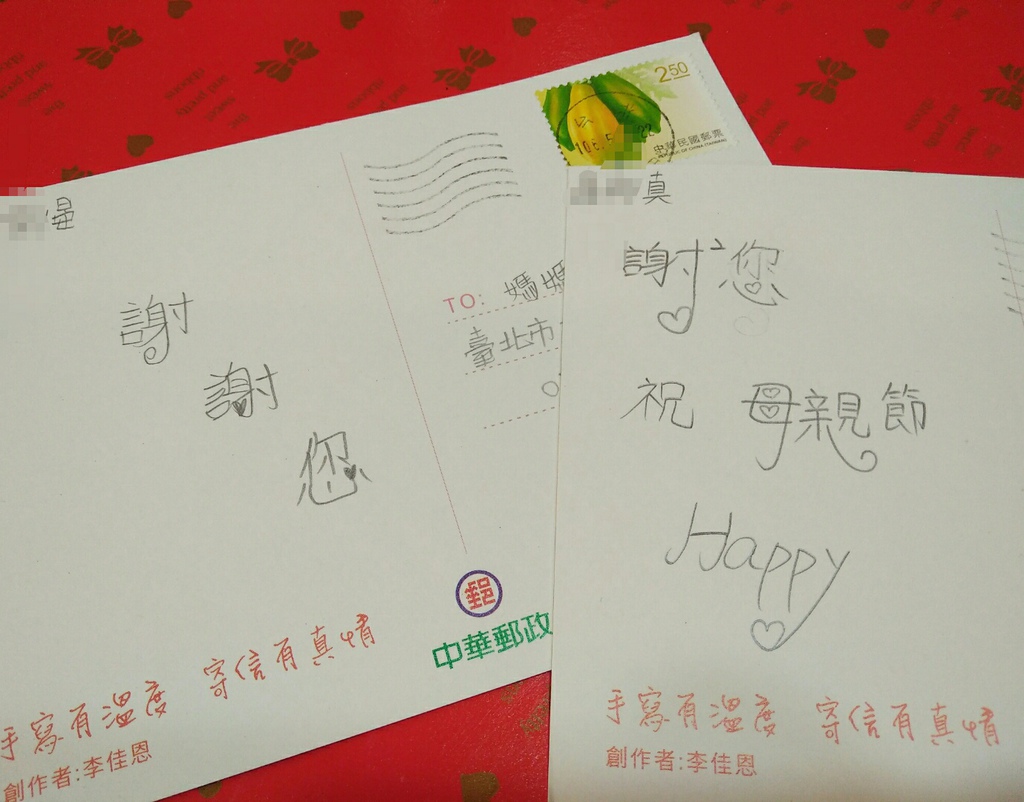 晏
謝
謝
您
2.50
中華民國郵票
REPUBLIC OF CHINA (TAIWAN)
TO: 媽媽
臺北市
郵
中華郵政
手寫有溫度 寄信有真情
創作者:李佳恩
真
謝²您
祝 母親節
Happy
手寫有溫度 寄信有真情
創作者:李佳恩